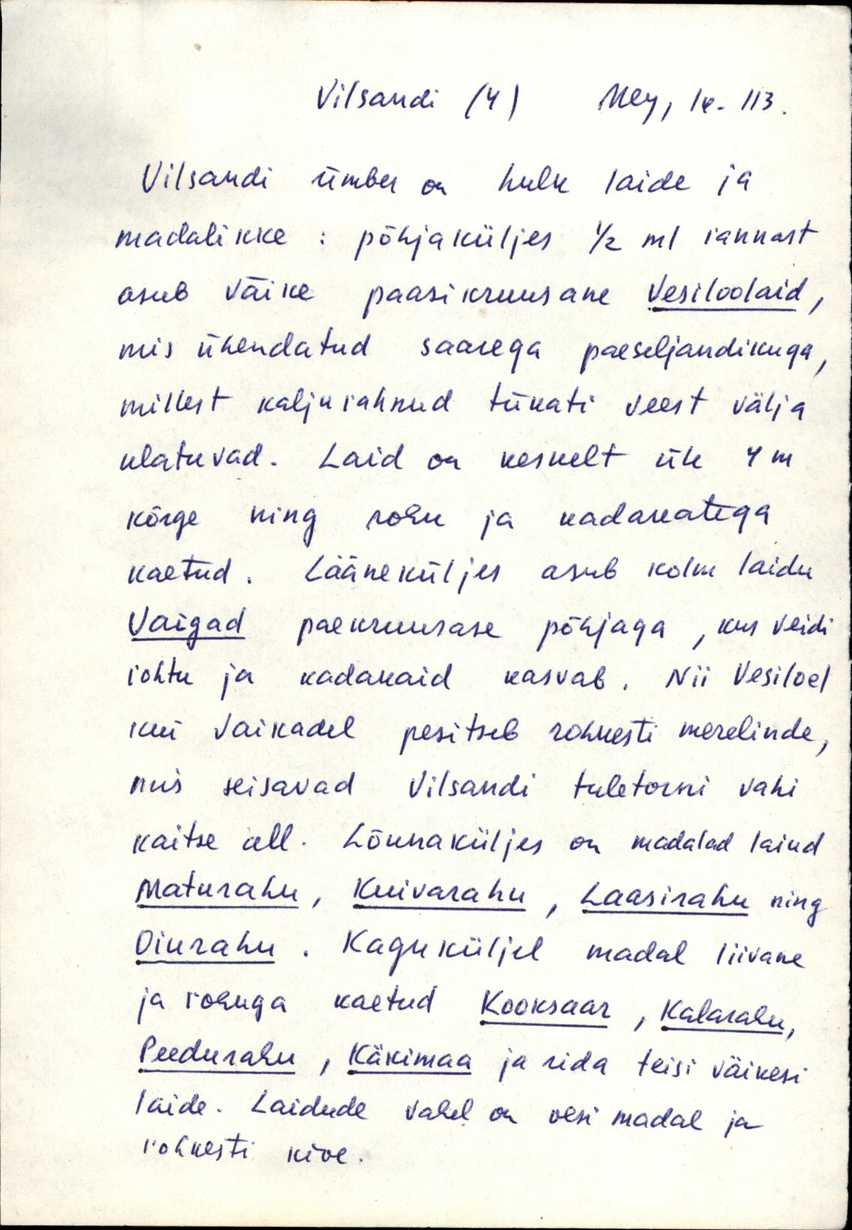 Vilsandi (4) Mey, lk. 113.
Vilsandi ümber on hulk laide ja
madalikke : põhjaküljes 1/2 ml rannast
asub väike paasikruusane Vesiloolaid,
mis ühendatud saarega paeseljandikuga,
millest kaljurahnud tükati veest välja
ulatuvad. Laid on keskelt üle 4 m
kõrge ning rohu ja kadakatega
kaetud. Lääneküljes asub kolm laidu
Vaigad paekruusase põhjaga, kus veidi
rohtu ja kadakaid kasvab. Nii Vesilool
kui Vaikadel pesitseb rohkesti merelinde,
mis seisavad Vilsandi tuletorni vahi
kaitse all. Lõunaküljes on madalad laiud
Maturahu, Kuivarahu, Laasirahu ning
Oiurahu. Kaguküljel madal liivane
ja rohuga kaetud Kooksaar, Kalarahu,
Peedurahu, Käkimaa ja rida teisi väikesi
laide. Laidude vahel on vesi madal ja
rohkesti kive.